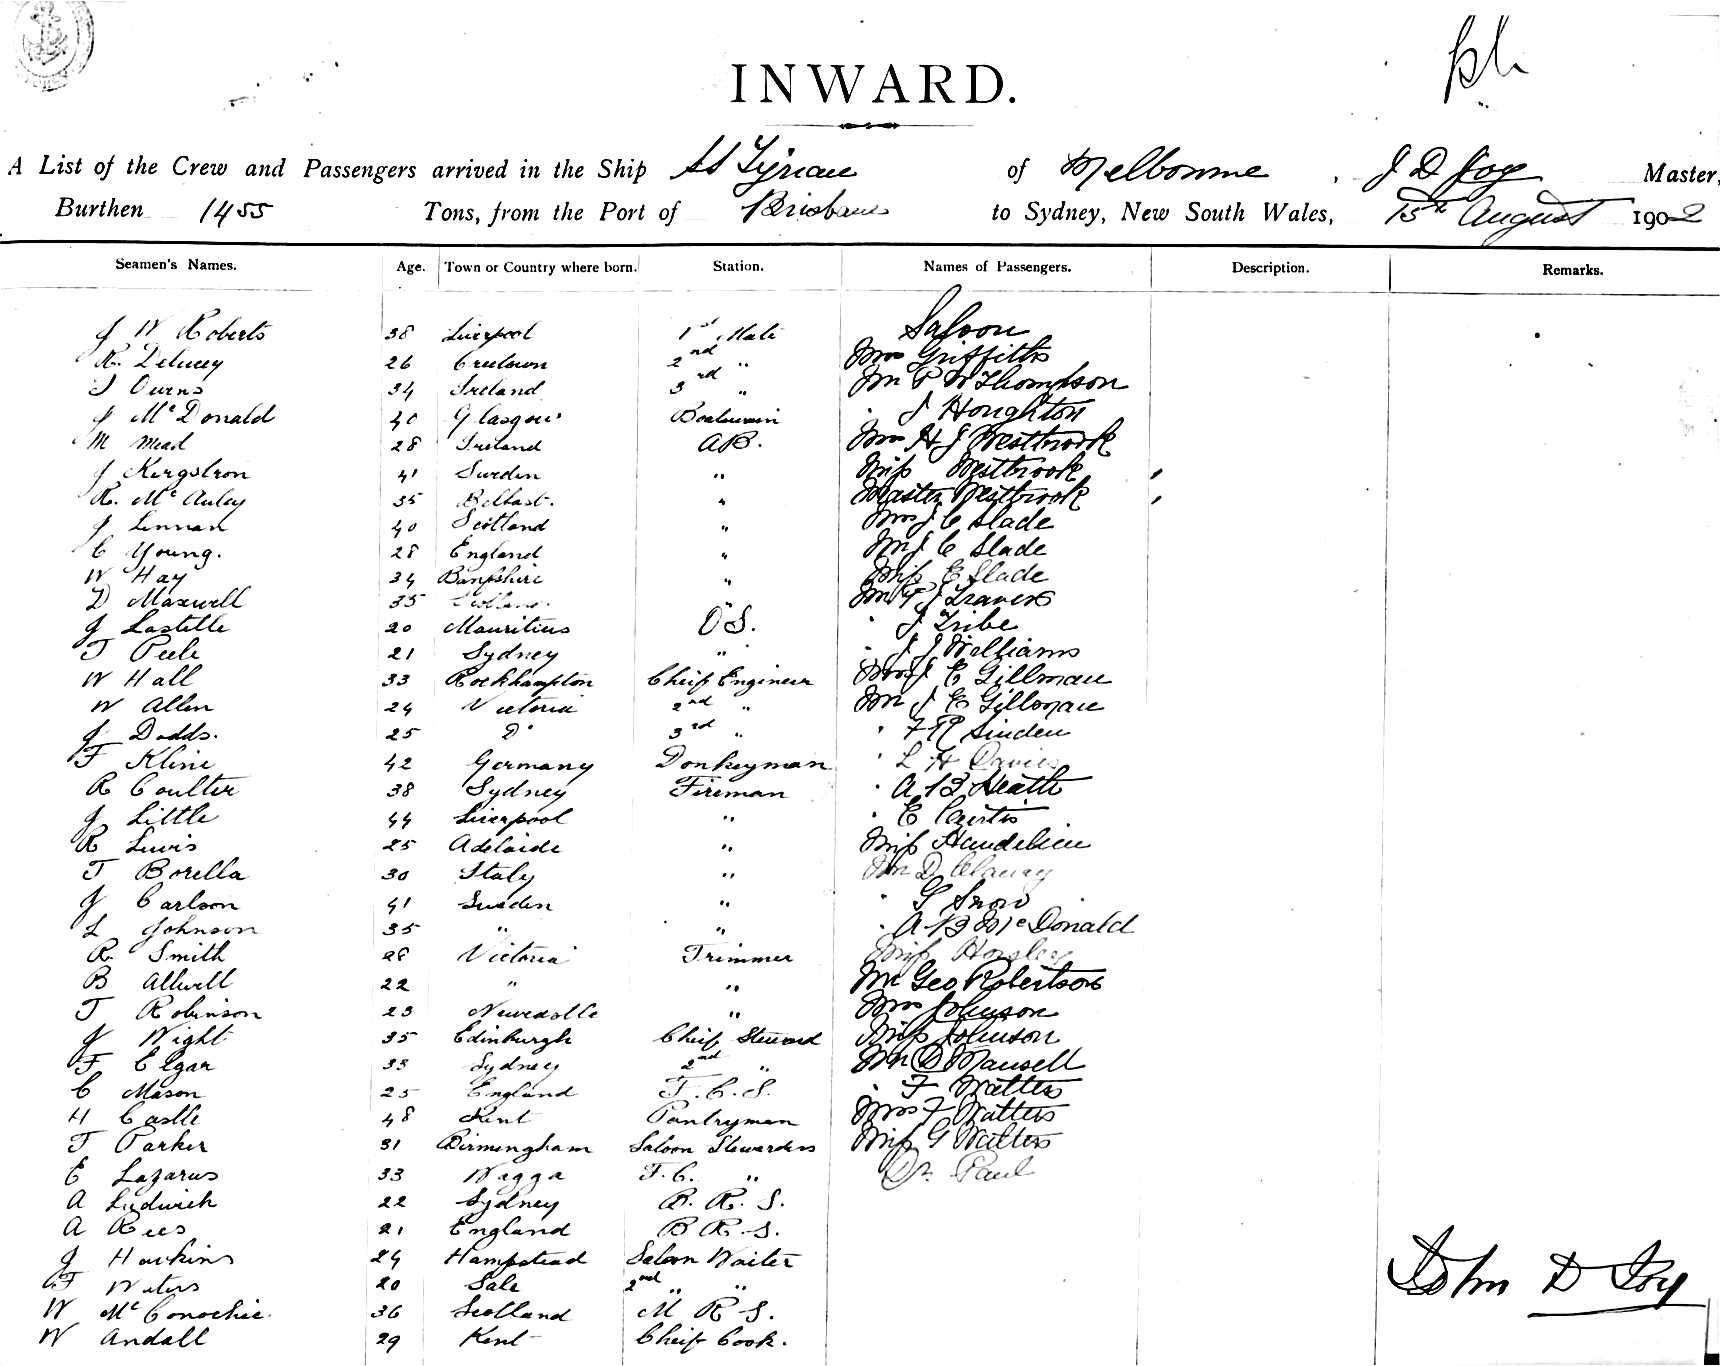 INWARD.
A List of the Crew and Passengers arrived in the Ship SS Tyrian of Melbourne, J D Joy Master,
Burthen 1455 Tons, from the Port of Brisbane to Sydney, New South Wales, 15th August 1902
Seamen's Names. Age. Town or Country where born. Station. Names of Passengers. Description. Remarks.
J W Roberts 38 Liverpool 1st Mate Saloon
R. Delucey 26 Creetown 2nd " Mrs Griffiths
J Owens 34 Ireland 3rd " Mr P W Thompson
J McDonald 40 Glasgow Boatswain " J Houghton
M Mead 28 Ireland AB. Mrs H J Westbrook
J Kergstron 41 Sweden " Miss Westbrook
R. McAuley 35 Belfast. " Master Westbrook
J Linnan 40 Scotland " Mrs J C Slade
C Young. 28 England " Mr J C Slade
W Hay 34 Banffshire " Miss E Slade
D Maxwell 35 Scotland. " Mr P J Travers
J Lastelle 20 Mauritius OS. " J Tribe
T Peele 21 Sydney " " J J Williams
W Hall 33 Rockhampton Cheif Engineer Mrs J E Gillman
W Allen 24 Victoria 2nd " Mr J E Gillman
J Dodds. 25 Do 3rd " " F R Sinden
F Kline 42 Germany Donkeyman " L H Davies
R Coulter 38 Sydney Fireman " A B Heath
J Little 44 Liverpool " " E Curtis
R Lewis 25 Adelaide " Miss
T Borella 30 Italy " Mr D
J Carlson 41 Sweden " " G Snow
L Johnson 35 " " " A B McDonald
R. Smith 28 Victoria Trimmer Miss Horsley
B Allwell 22 " " Mr Geo Robertson
T Robinson 23 Newcastle " Mrs Johnson
J Wight 35 Edinburgh Cheif Steward Miss Johnson
F Elgar 33 Sydney 2nd " Mr D Mansell
C Mason 25 England F. C. S. " F Watters
H Castle 48 Kent Pantryman Mrs F Watters
T Parker 31 Birmingham Saloon Stewardess Miss G Watters
E Lazarus 33 Wagga F. C. " Dr. Paul
A Ludwick 22 Sydney B. R. S.
A Rees 21 England B R. S.
J Hawkins 24 Hampstead Saloon Waiter
F Waters 20 Sale 2nd " "
W McConochie. 36 Scotland M R S.
W Andall 29 Kent Cheif Cook.
John D Joy